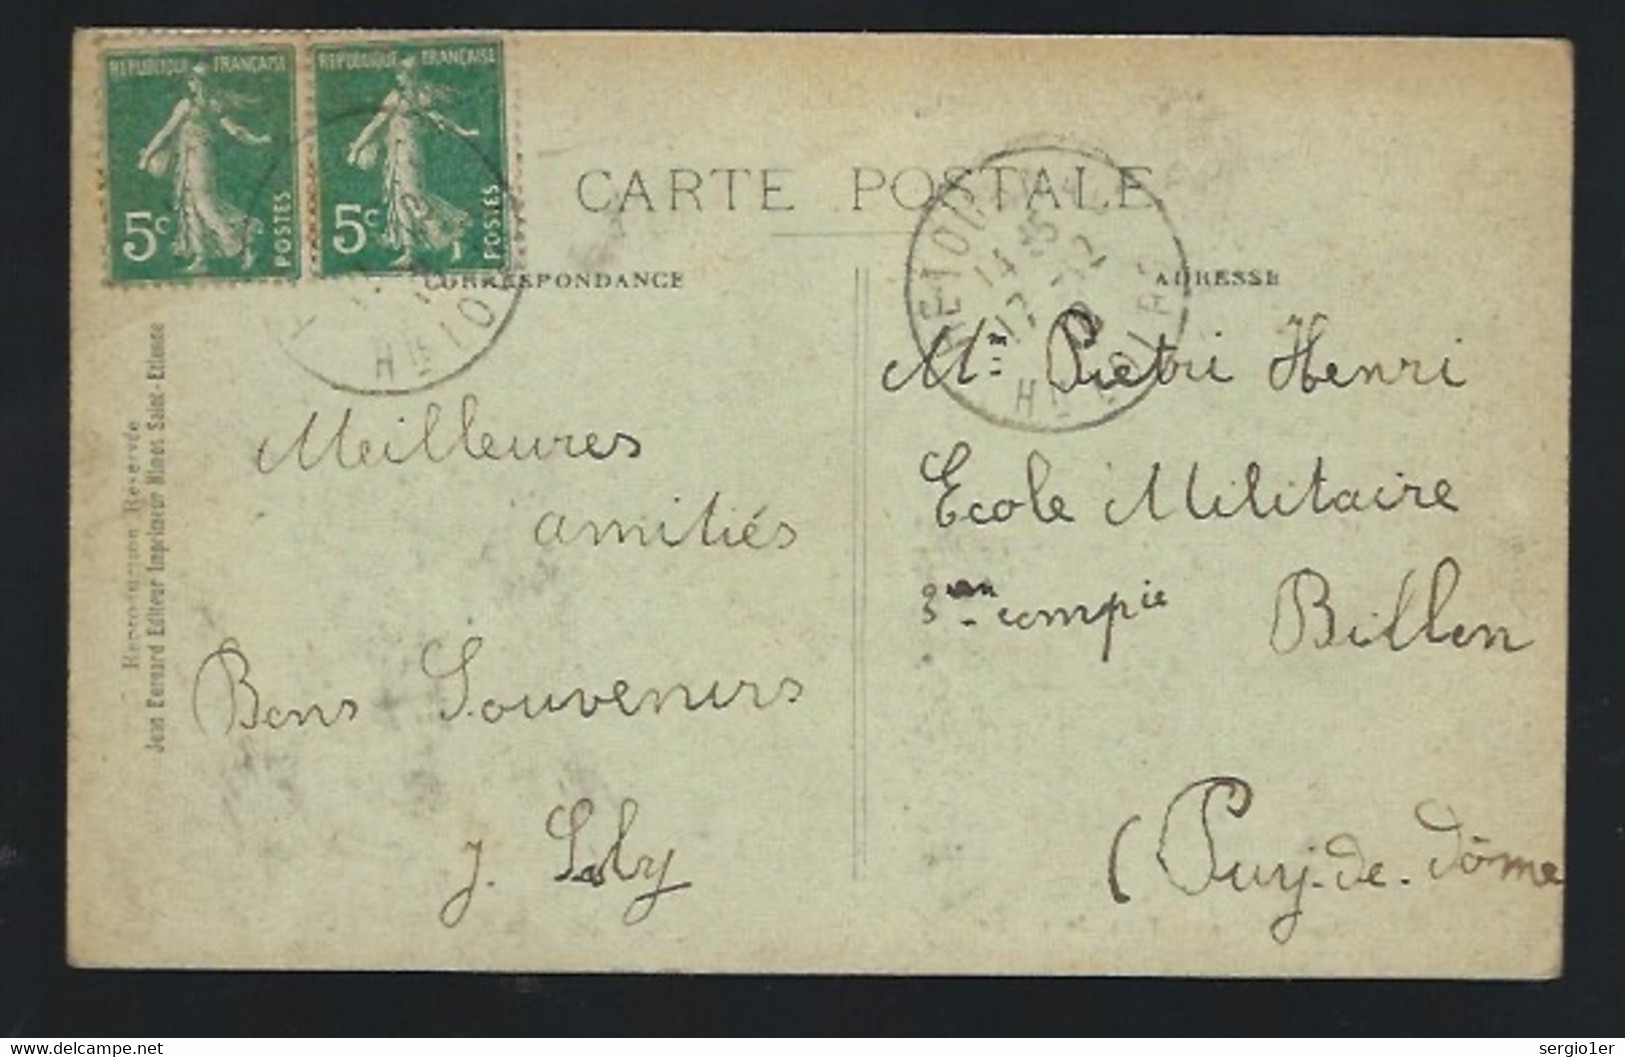 REPUBLIQUE FRANÇAISE
5c POSTES
REPUBLIQUE FRANÇAISE
5c POSTES
CARTE POSTALE
CORRESPONDANCE
ADRESSE
14 45
12 - 12
Hte LOIRE
Hte LOI
Reproduction Reservée
Jean Bernard Editeur Imprimeur Nimes Saint-Etienne
Meilleures
amitiés
Bons Souvenirs
J.
Mr Pietri Henri
Ecole Militaire
3em compie Billon
(Puy-de-Dôme
www.delcampe.net
sergio1er